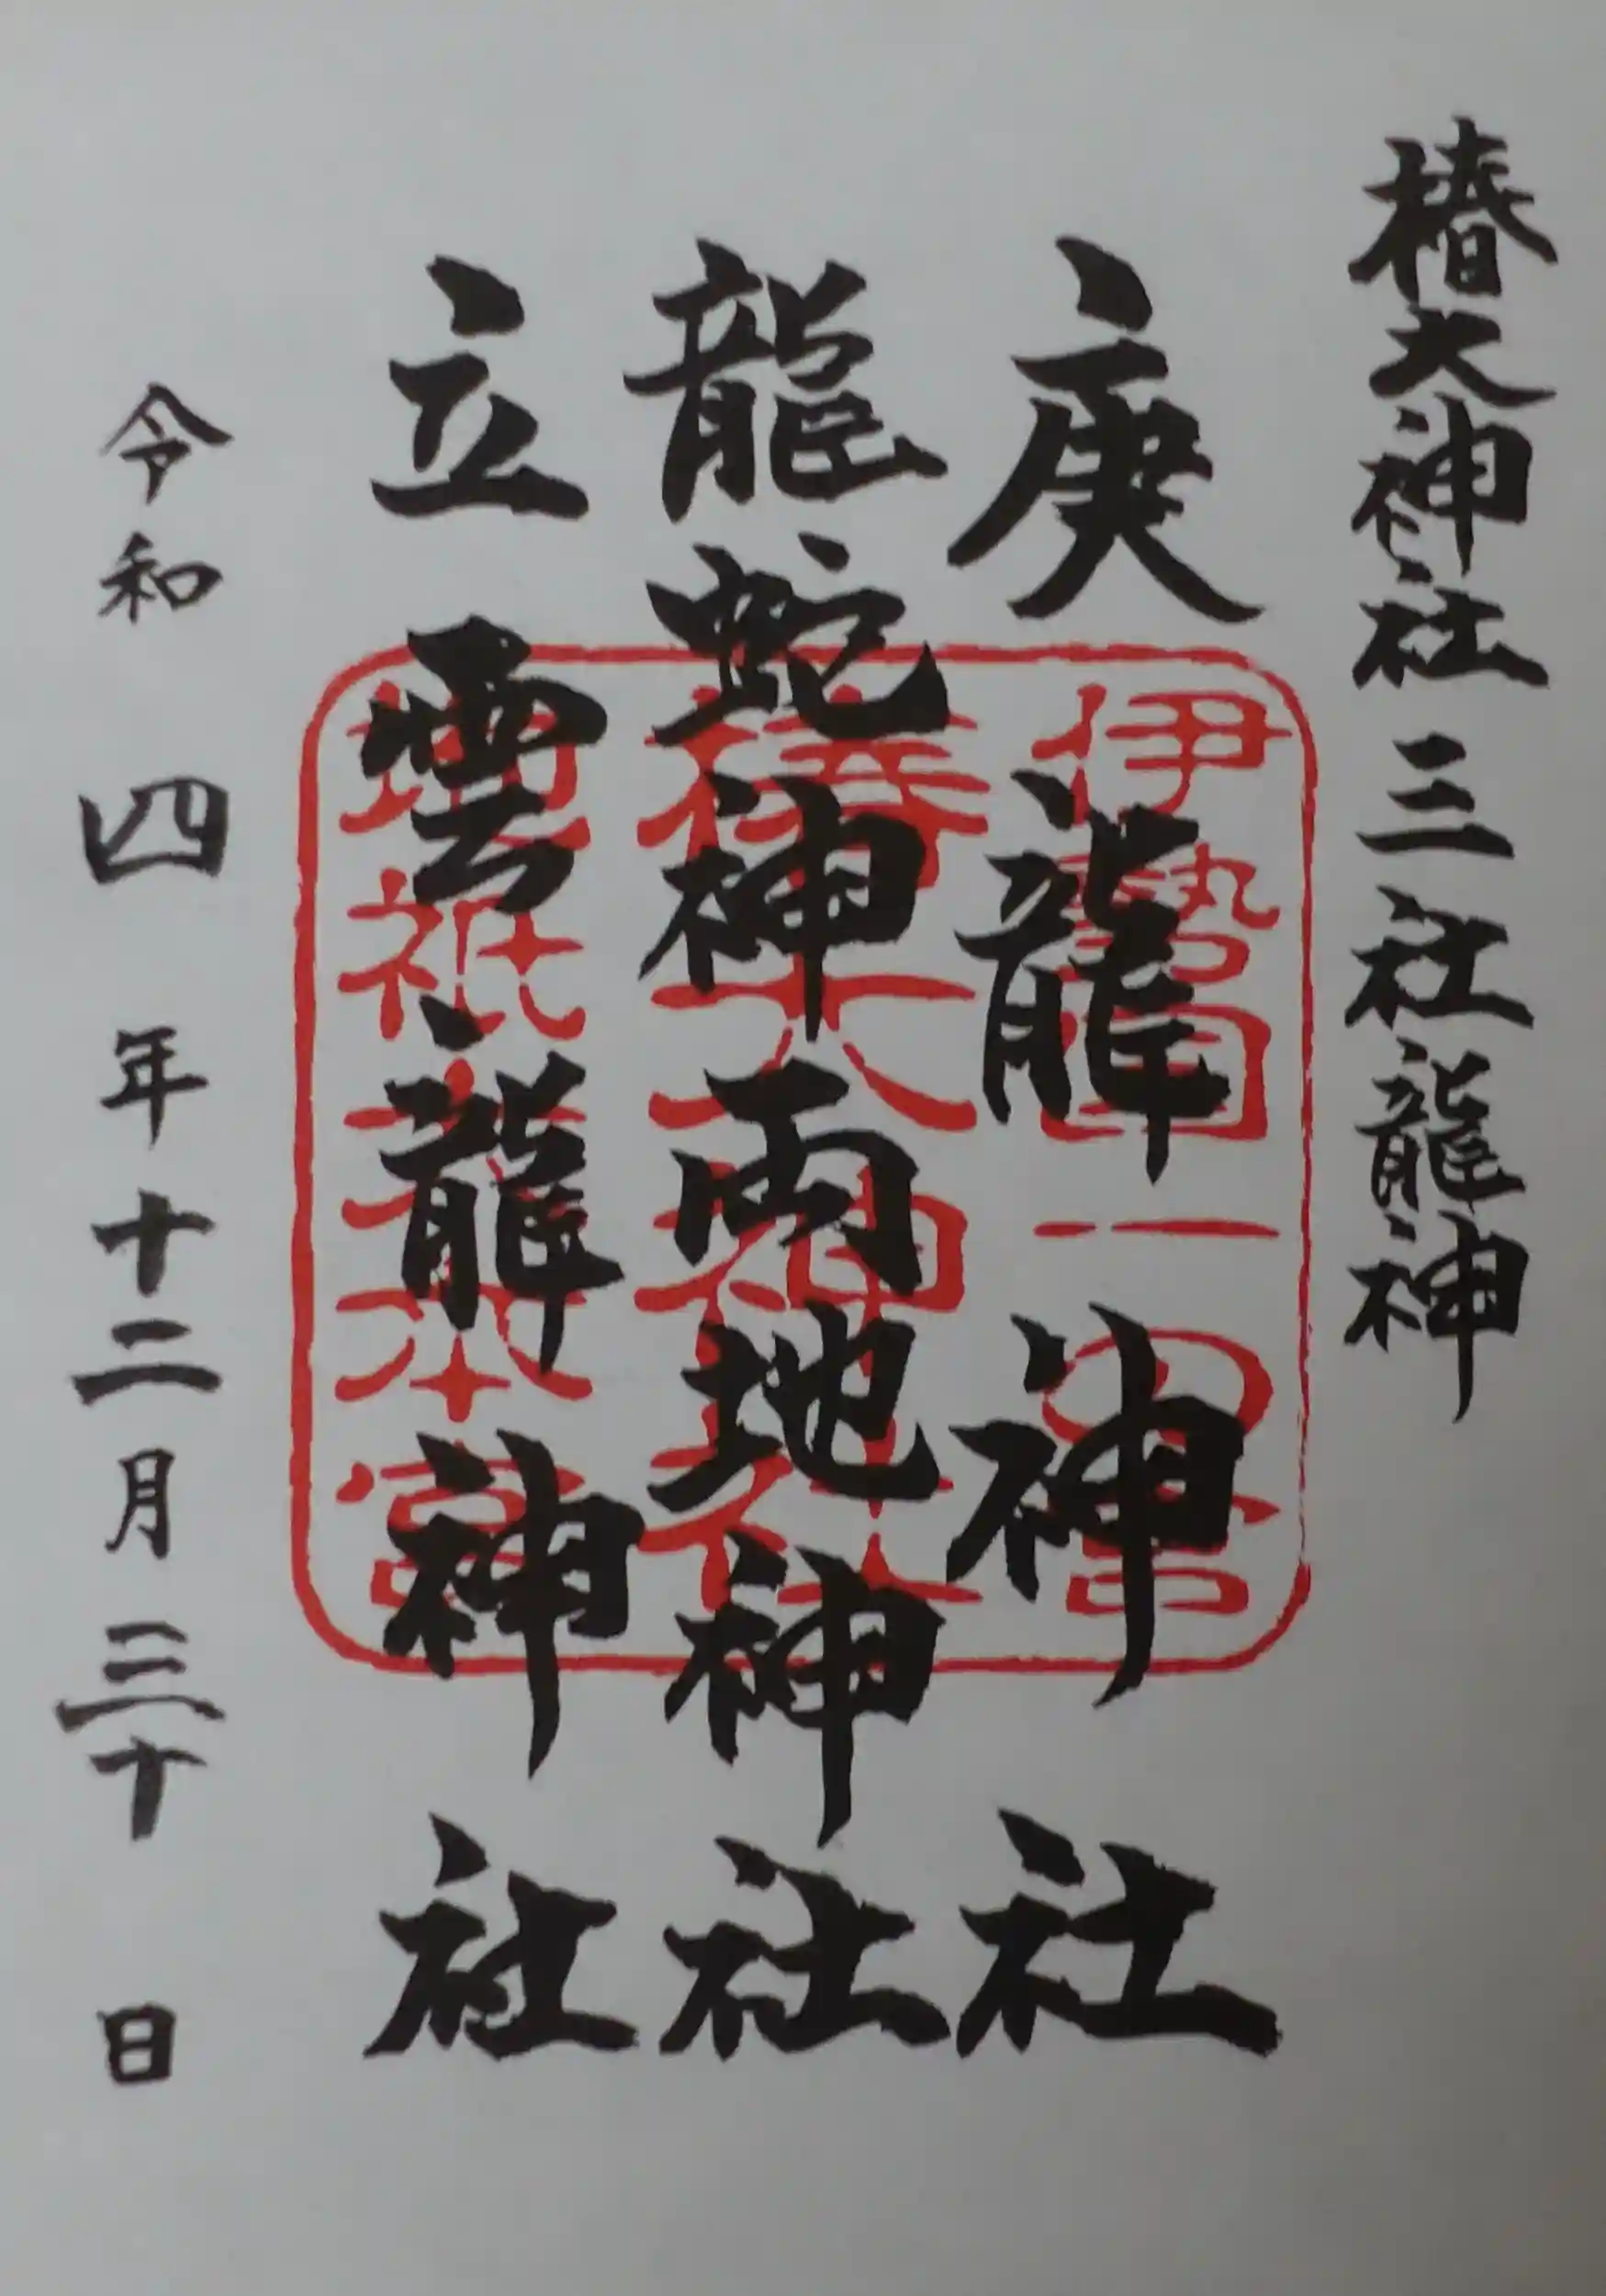 椿大神社三社龍神
庚龍神社
龍蛇神両地神社
立雲龍神社
令和四年十二月三十日
伊勢国一の宮
椿大神社
地祇
本宮